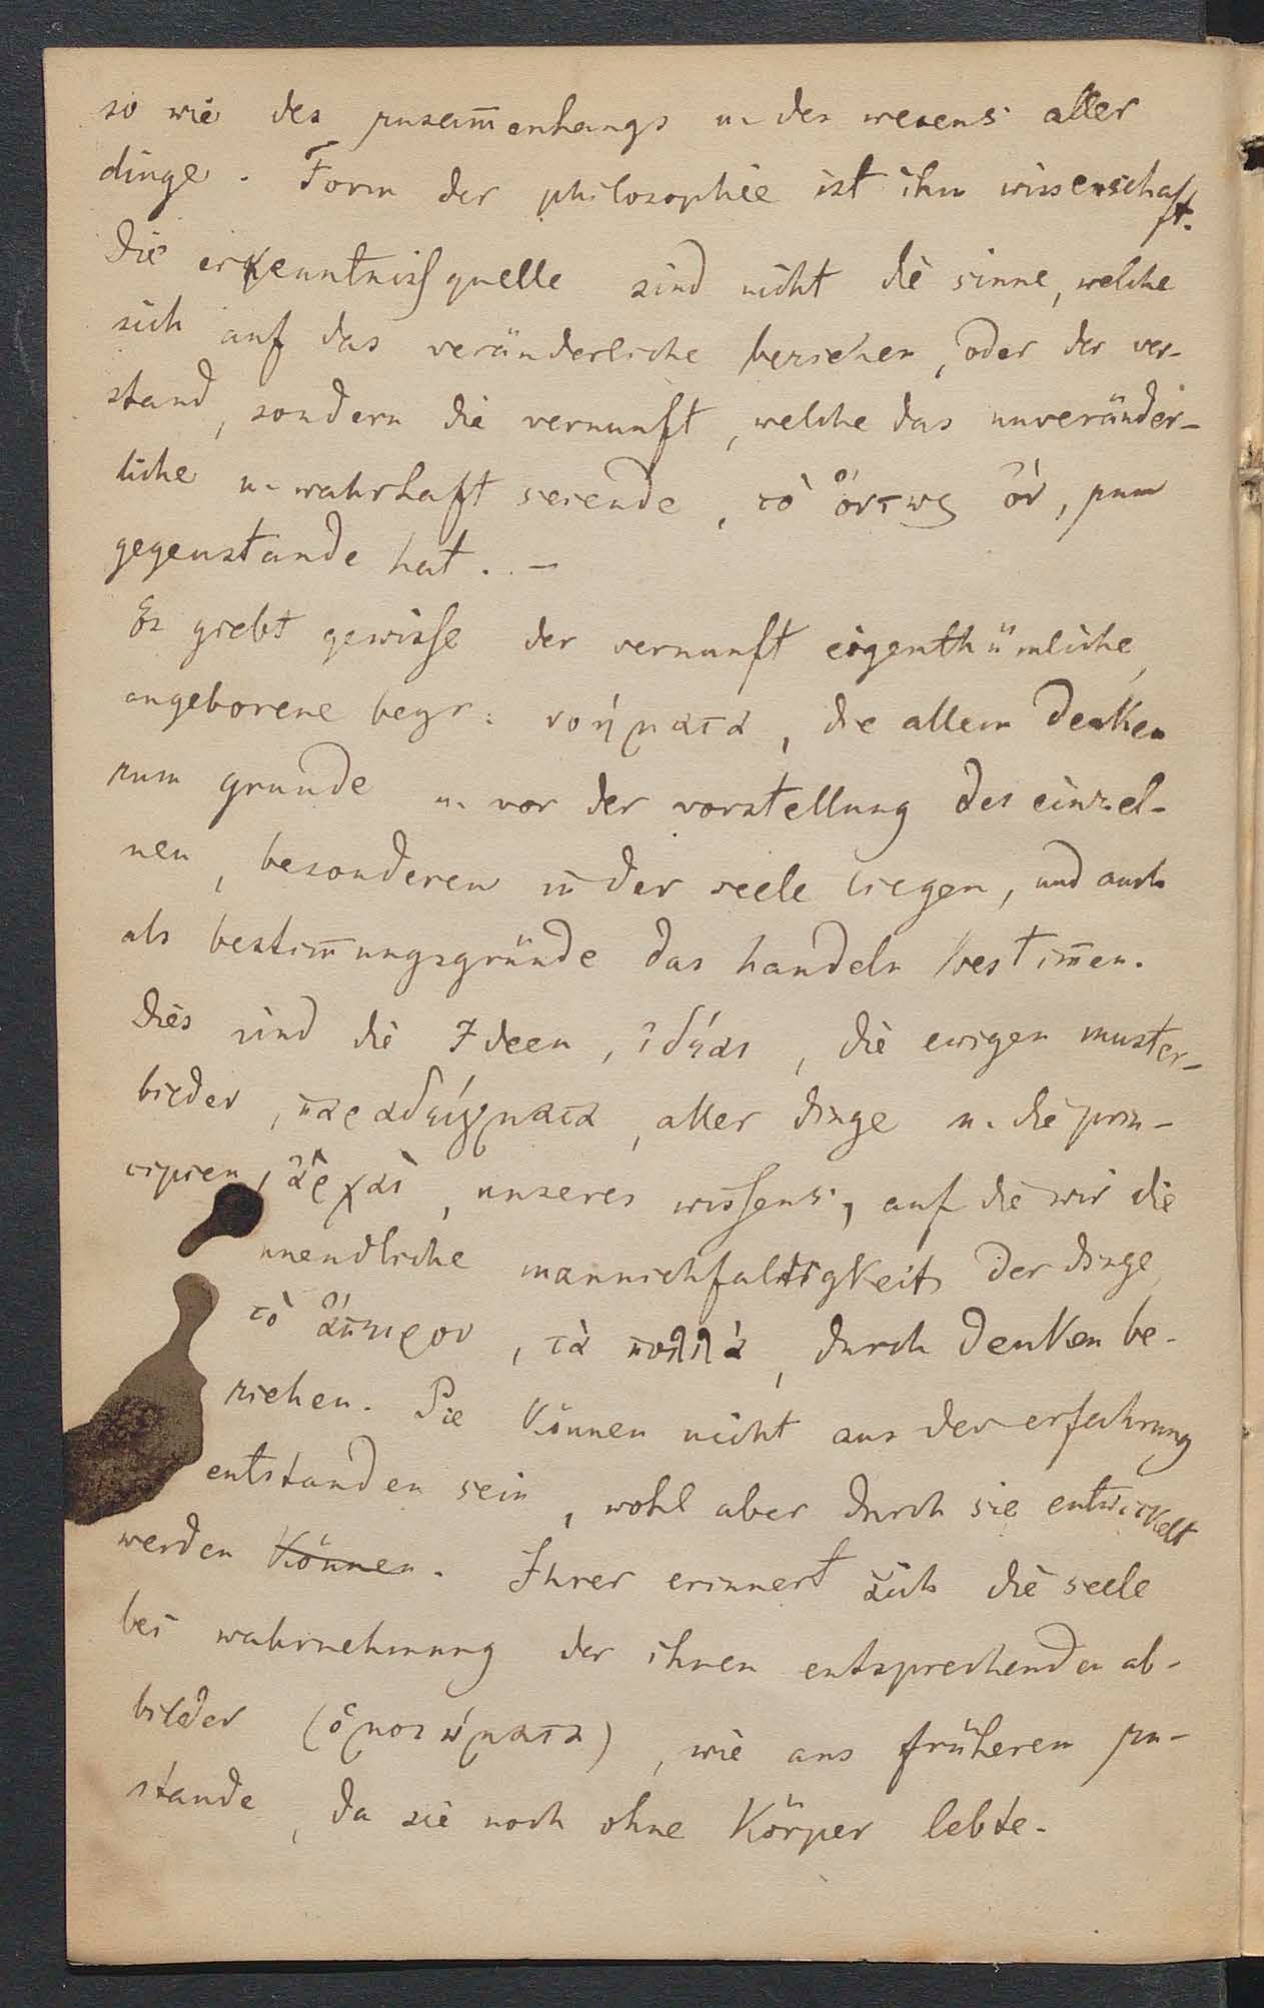 so wie des zusam̅enhangs u. des wesens aller
dinge. Form der philosophie ist ihm wissenschaft.
Die erkenntnißquelle sind nicht die sinne, welche
sich auf das veränderliche beziehen, oder der ver-
stand, sondern die vernunft, welche das unveränder-
liche u. wahrhaft seiende, τὸ ὄντως ὄν, zum
gegenstande hat. –
Es giebt gewisse der vernunft eigenthümliche,
angeborene begr: νοήματα, die allem denken
zum grunde u. vor der vorstellung des einzel-
nen, besonderen in der seele liegen, und auch
als bestim̅ungsgründe das handeln bestim̅en.
Dies sind die Ideen, ἰδέαι, die ewigen muster-
bilder, παραδείγματα, aller dinge u. die prin-
cipien, ἀρχαὶ, unseres wissens, auf die wir die
unendliche mannichfaltigkeit der dinge,
τὸ ἄπειρον, τὰ πολλά, durch denken be-
ziehen. Sie können nicht aus der erfahrung
entstanden sein, wohl aber durch sie entwickelt
werden können. Ihrer erinnert sich die seele
bei wahrnehmung der ihnen entsprechenden ab-
bilder (ὁμοιώματα), wie aus früherem zu-
stande, da sie noch ohne Körper lebte.